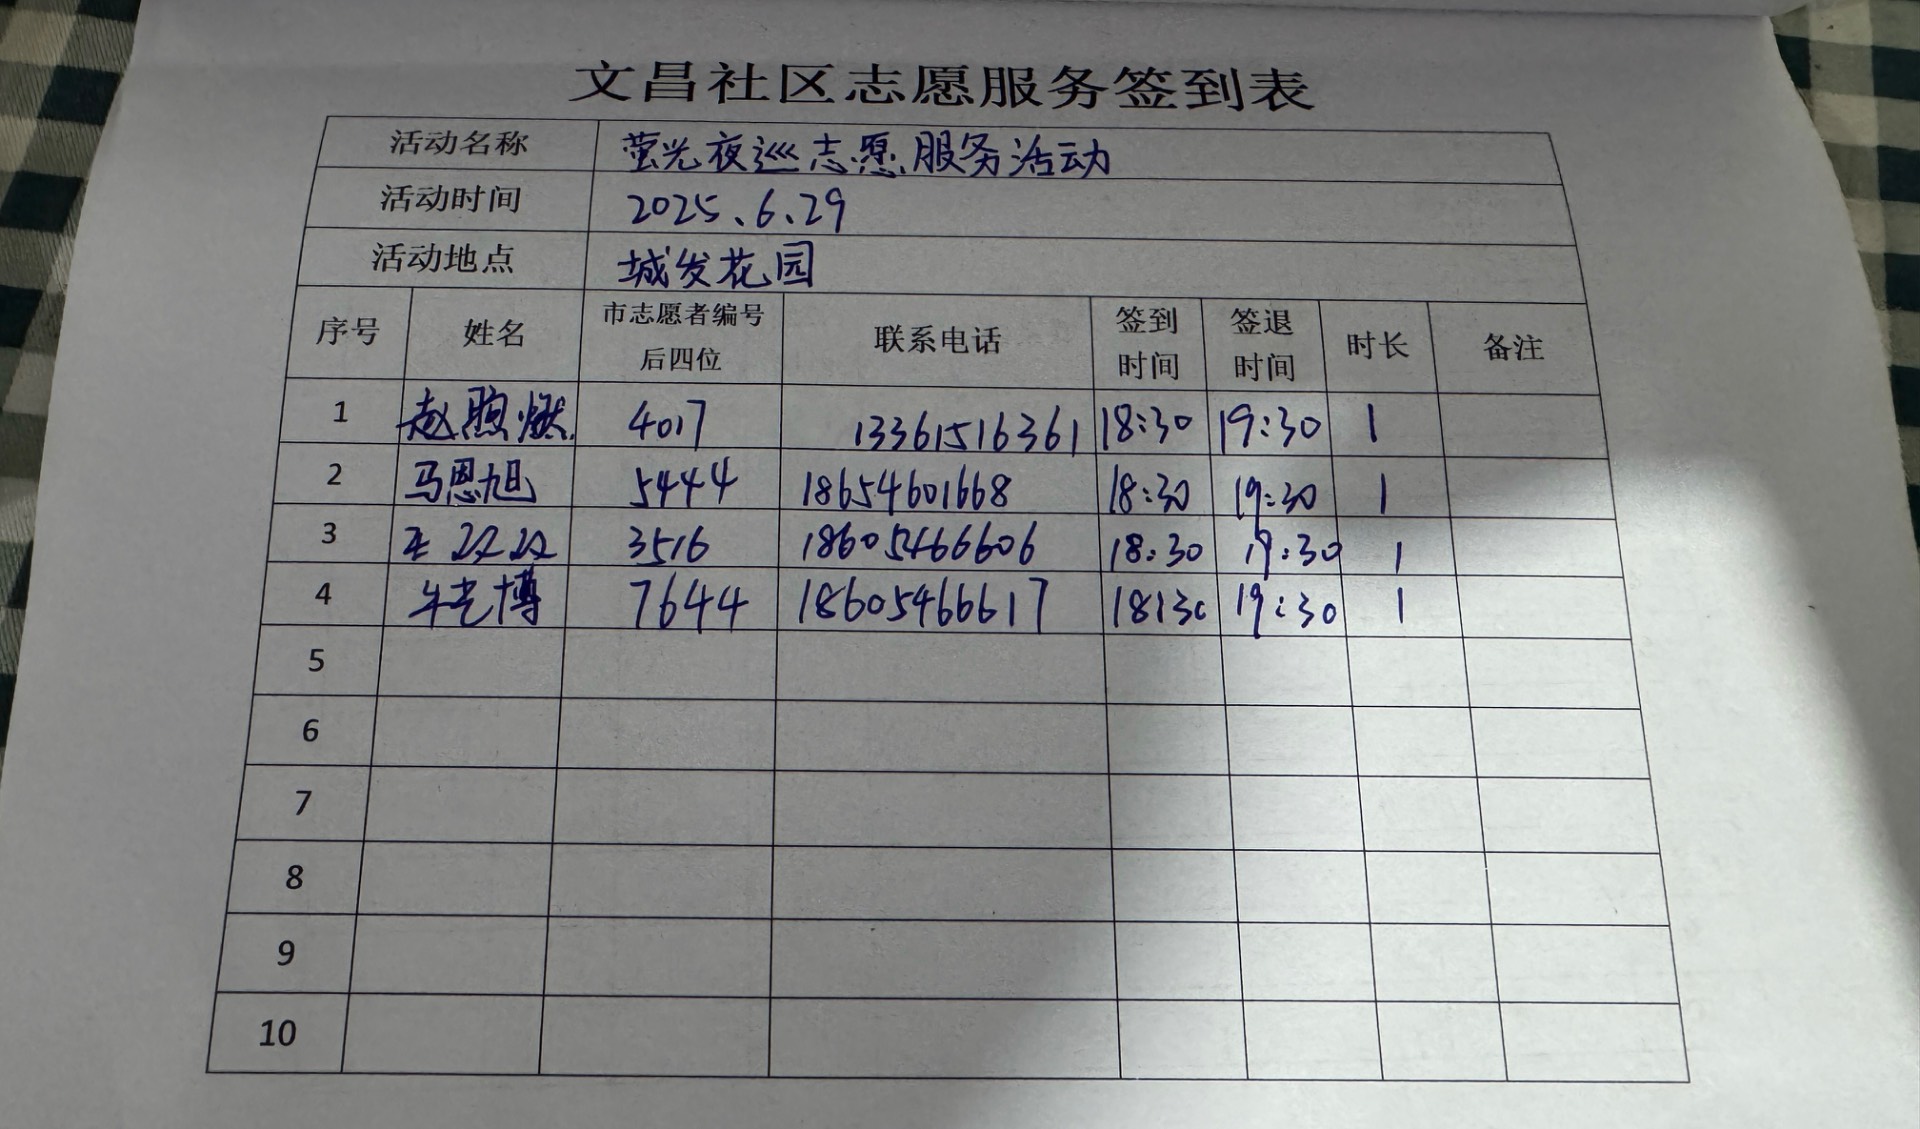 文昌社区志愿服务签到表
活动名称 萤光夜巡志愿服务活动
活动时间 2025.6.29
活动地点 城发花园
序号 姓名 市志愿者编号后四位 联系电话 签到时间 签退时间 时长 备注
1 赵煦燃 4017 13361516361 18:30 19:30 1
2 马恩旭 5444 18654601668 18:30 19:30 1
3 王 3516 18605466606 18:30 19:30 1
4 牛艺博 7644 18605466617 18:30 19:30 1
5
6
7
8
9
10